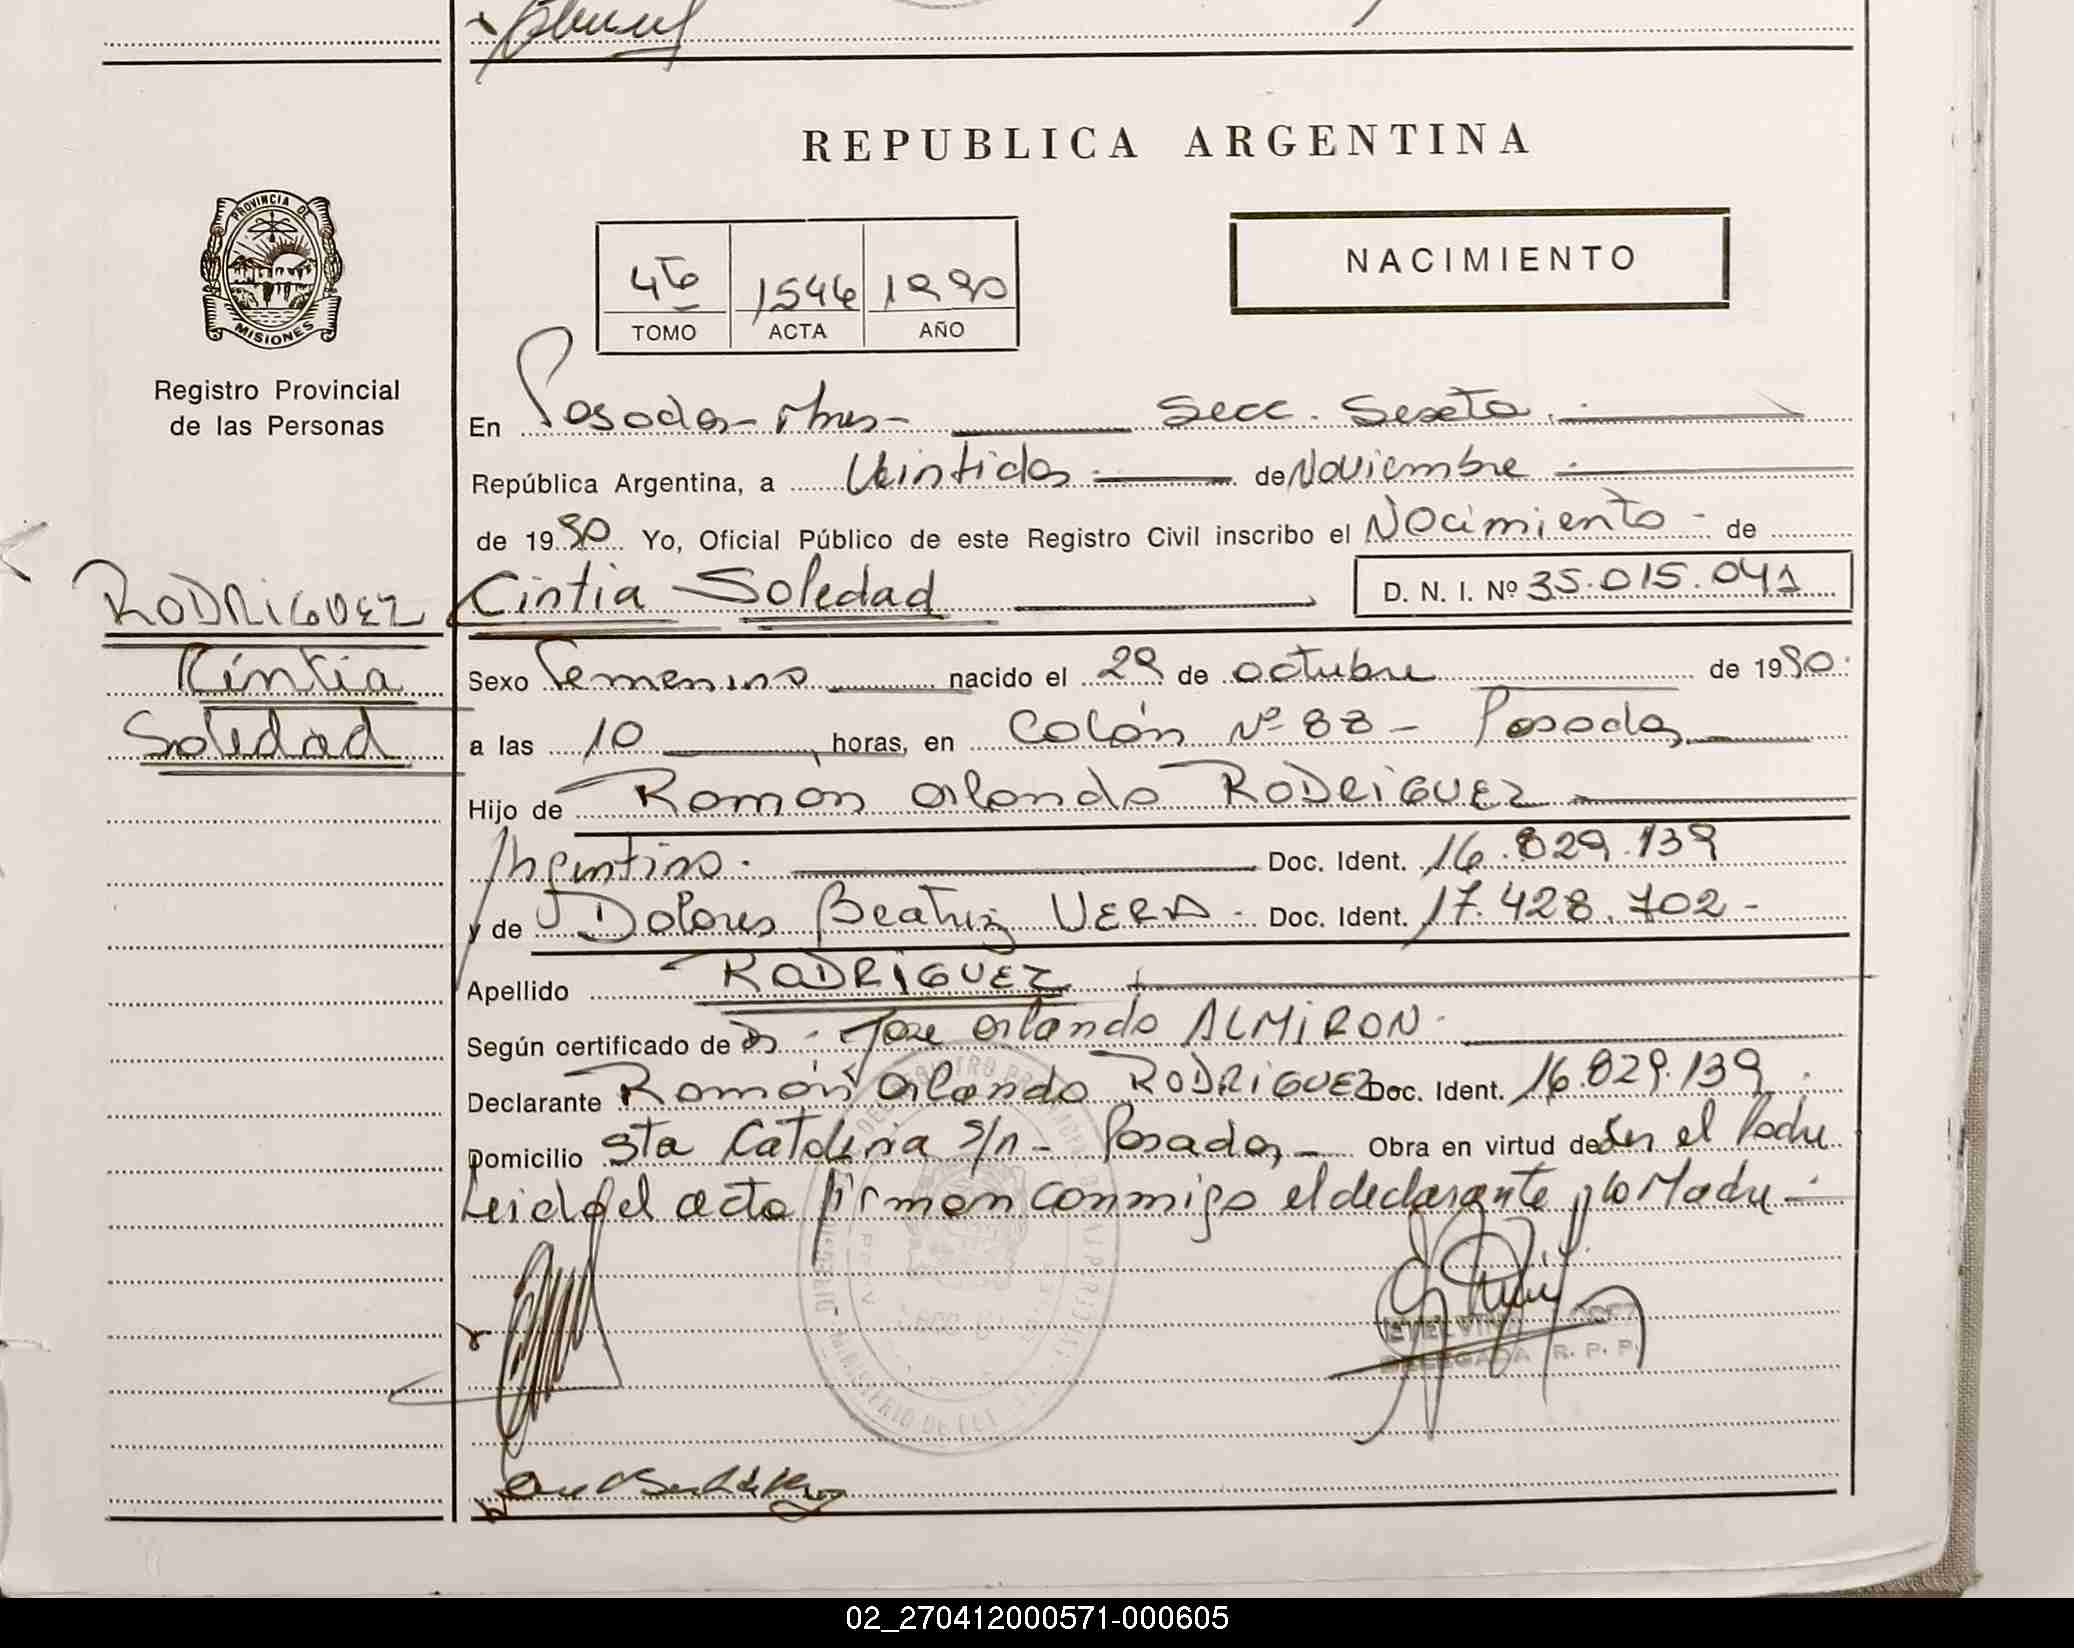 REPUBLICA ARGENTINA
PROVINCIA DE
MISIONES
Registro Provincial
de las Personas
4to 1546 1990
TOMO ACTA AÑO
NACIMIENTO
En Posadas - Mnes - Secc. Sexta.
República Argentina, a Veintidos de Noviembre
de 1990 Yo, Oficial Público de este Registro Civil inscribo el Nacimiento - de
RODRIGUEZ
Cintia
Soledad
Cintia Soledad D. N. I. Nº 35.015.041
Sexo Femenino nacido el 29 de octubre de 1990.
a las 10 horas, en Colón Nº 88 - Posadas
Hijo de Ramón Orlando RODRIGUEZ
Argentino. Doc. Ident. 16.829.139
y de Dolores Beatriz VERA - Doc. Ident. 17.428.702 -
Apellido RODRIGUEZ
Según certificado de Dr. Jose Orlando ALMIRON.
Declarante Ramón Orlando RODRIGUEZ Doc. Ident. 16.829.139.
Domicilio Sta Catalina s/n - Posadas - Obra en virtud de Ser el Padre
Leida el acta firman conmigo el declarante y la Madre -
DELEGADA R. P. P.
02_270412000571-000605